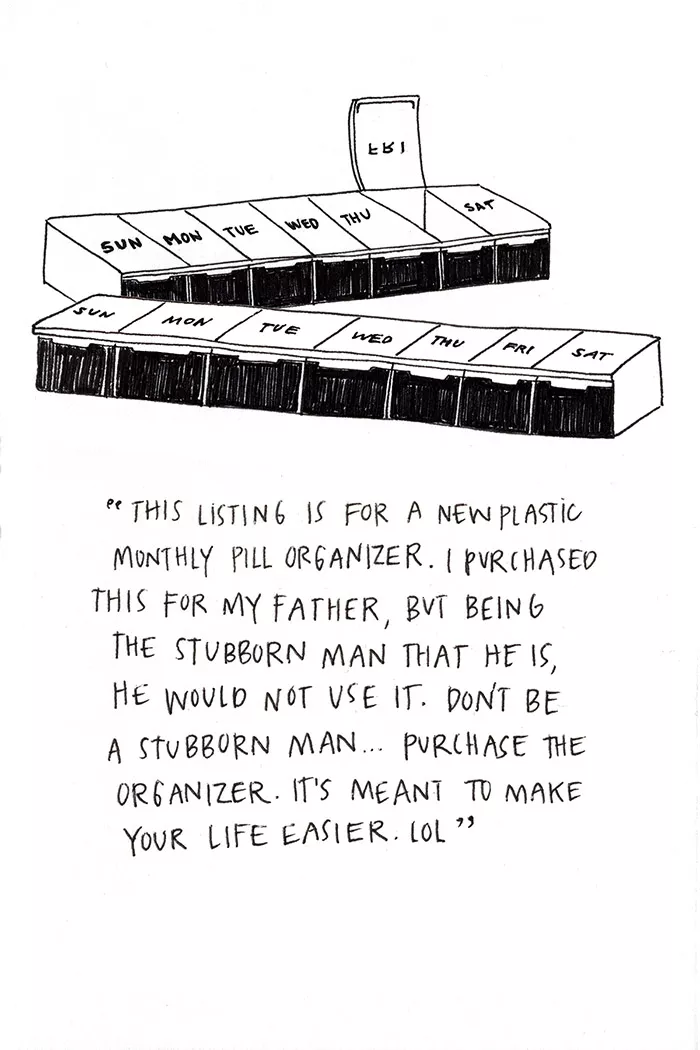 FRI
SUN MON TUE WED THU SAT
SUN MON TUE WED THU FRI SAT
“THIS LISTING IS FOR A NEW PLASTIC
MONTHLY PILL ORGANIZER. I PURCHASED
THIS FOR MY FATHER, BUT BEING
THE STUBBORN MAN THAT HE IS,
HE WOULD NOT USE IT. DON'T BE
A STUBBORN MAN... PURCHASE THE
ORGANIZER. IT'S MEANT TO MAKE
YOUR LIFE EASIER. LOL”